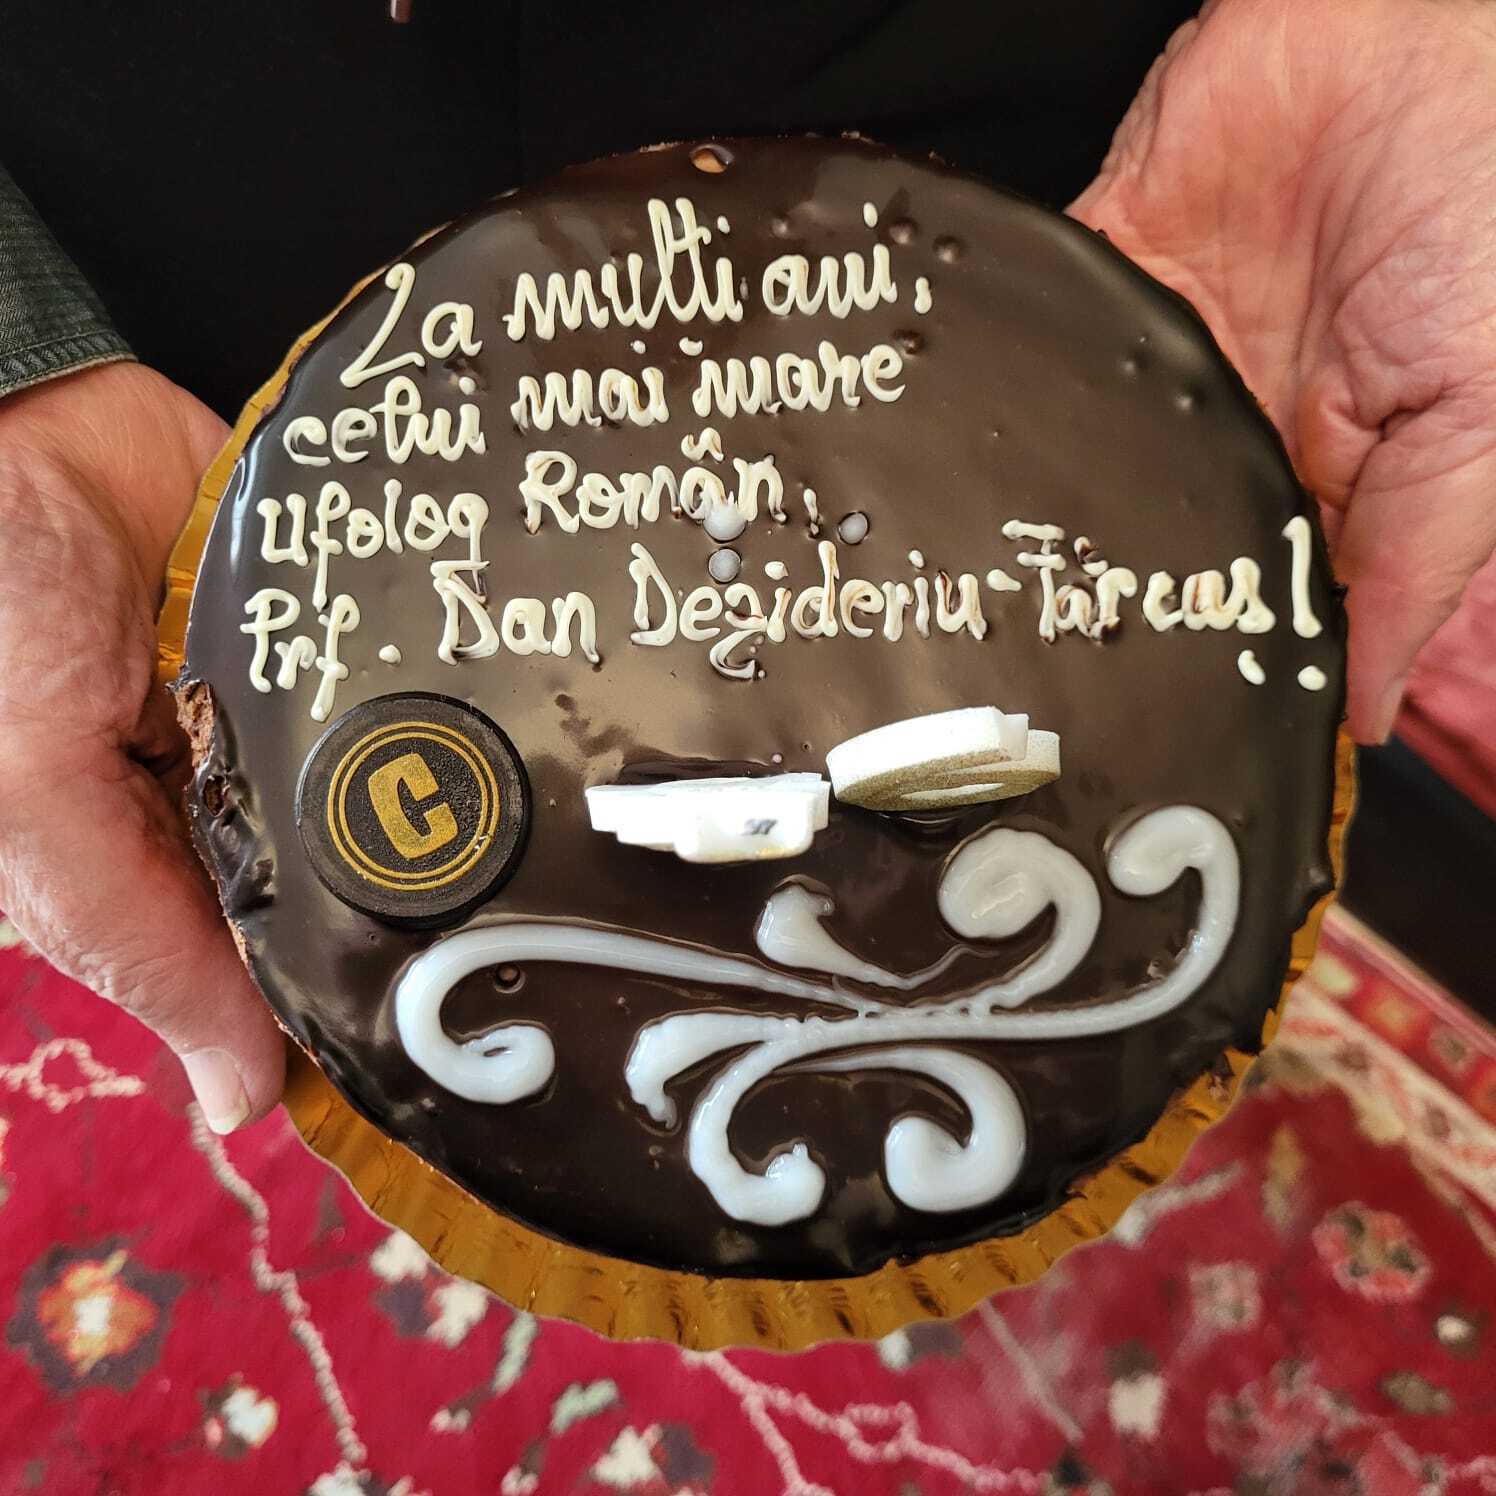 La mulți ani,
celui mai mare
Ufolog Român,
Prf. Dan Dezideriu-Fărcaș!
C
97